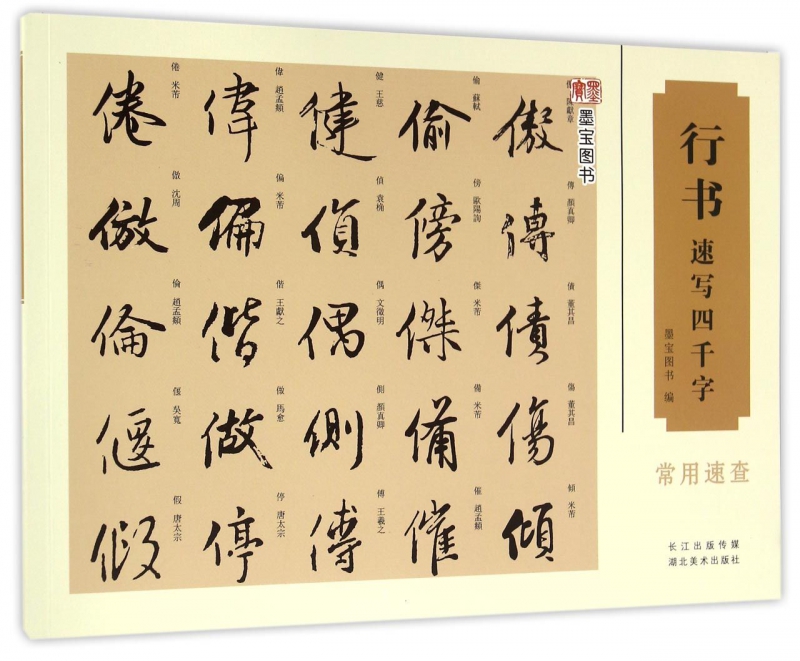 行书
速写四千字
墨宝图书 编
常用速查
长江出版传媒
湖北美术出版社
墨寶
墨宝图书
倦
倦 米芾
倣
倣 沈周
倫
倫 趙孟頫
偃
偃 吳寬
假
假 唐太宗
偉
偉 趙孟頫
偏
偏 米芾
偕
偕 王獻之
做
做 馬愈
停
停 唐太宗
健
健 王慈
偵
偵 袁桷
偶
偶 文徵明
側
側 顏真卿
傅
傅 王羲之
偷
偷 蘇軾
傍
傍 歐陽詢
傑
傑 米芾
備
備 米芾
催
催 趙孟頫
傲
獻章
傳
傳 顏真卿
債
債 董其昌
傷
傷 董其昌
傾
傾 米芾